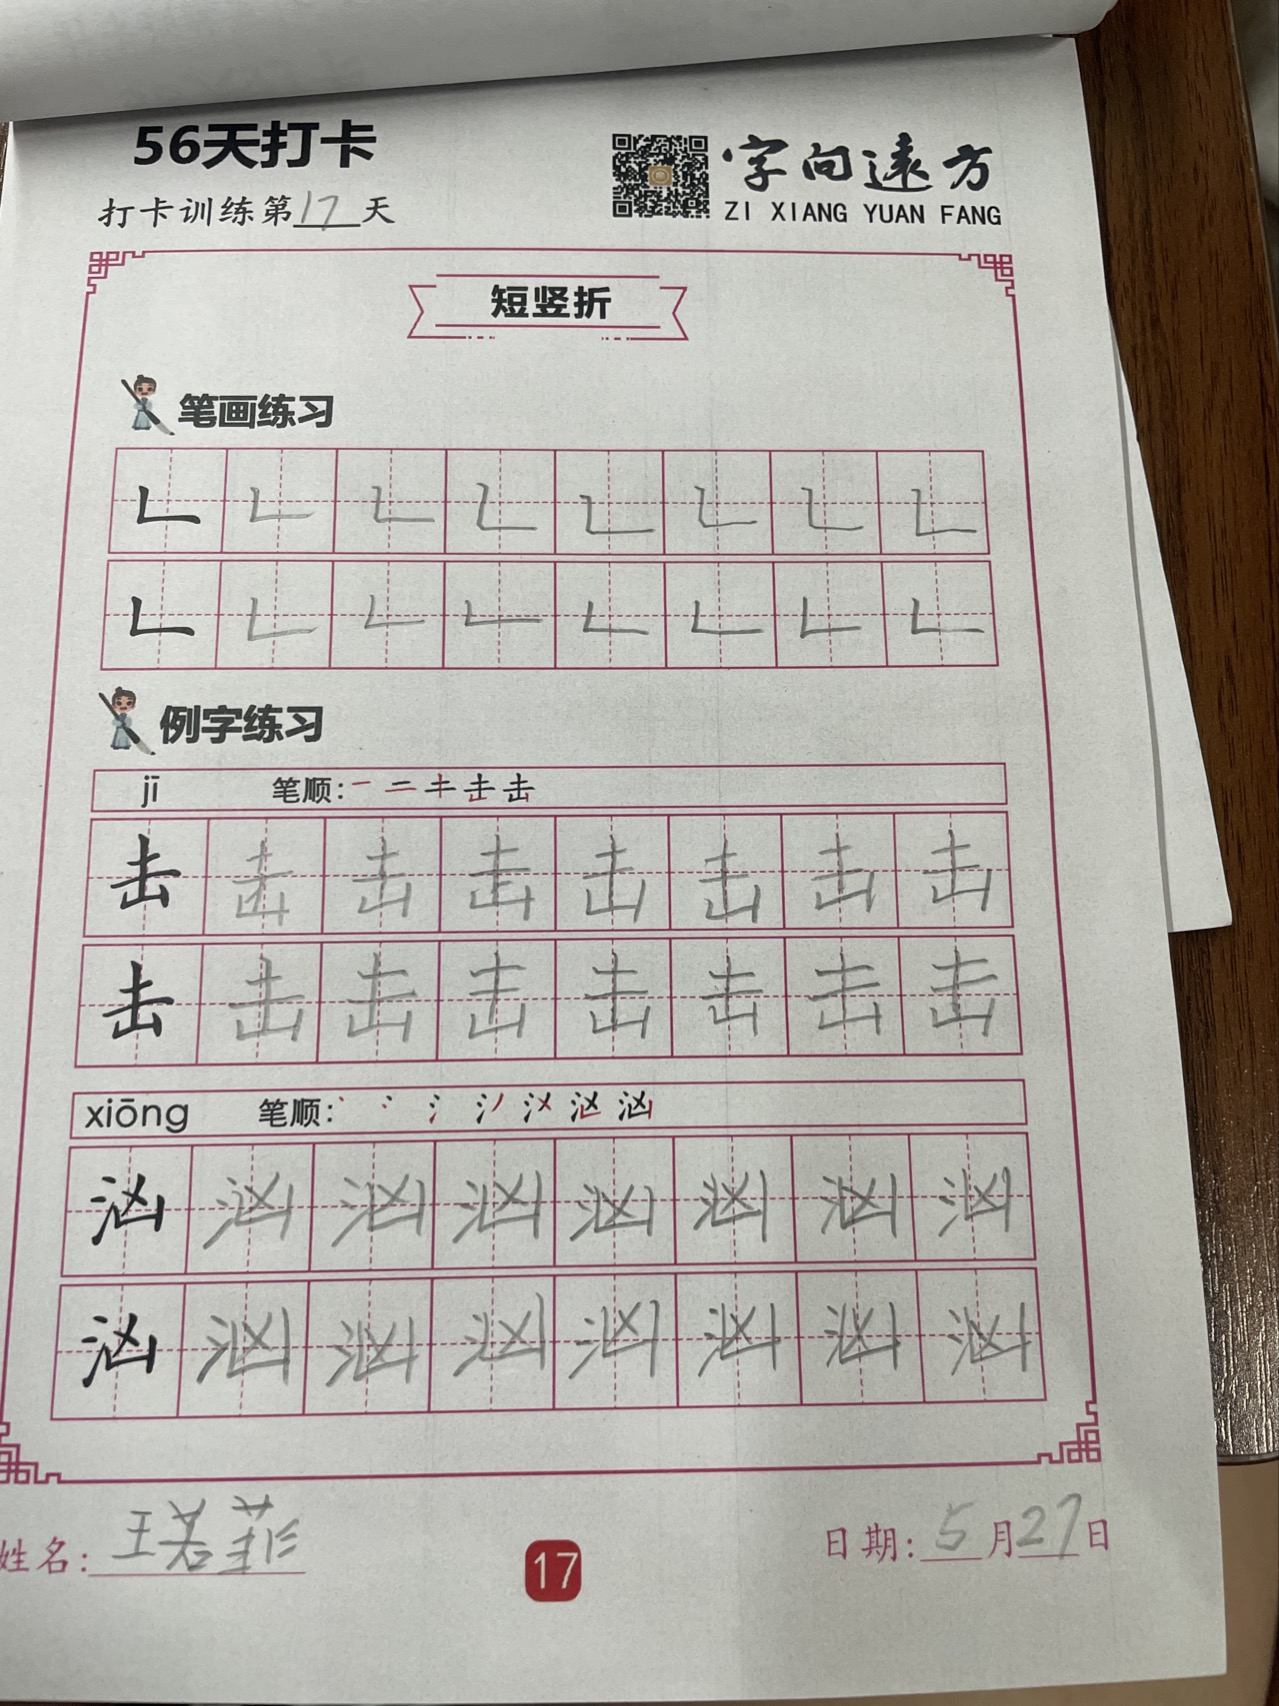 56天打卡
打卡训练第17天
字向远方
ZI XIANG YUAN FANG
短竖折
笔画练习
𠃊 𠃊 𠃊 𠃊 𠃊 𠃊 𠃊 𠃊
𠃊 𠃊 𠃊 𠃊 𠃊 𠃊 𠃊 𠃊
例字练习
jī 笔顺:
击 击 击 击 击 击 击 击
击 击 击 击 击 击 击 击
xiōng 笔顺:
汹 汹 汹 汹 汹 汹 汹 汹
汹 汹 汹 汹 汹 汹 汹 汹
姓名: 王若菲
17
日期: 5月27日